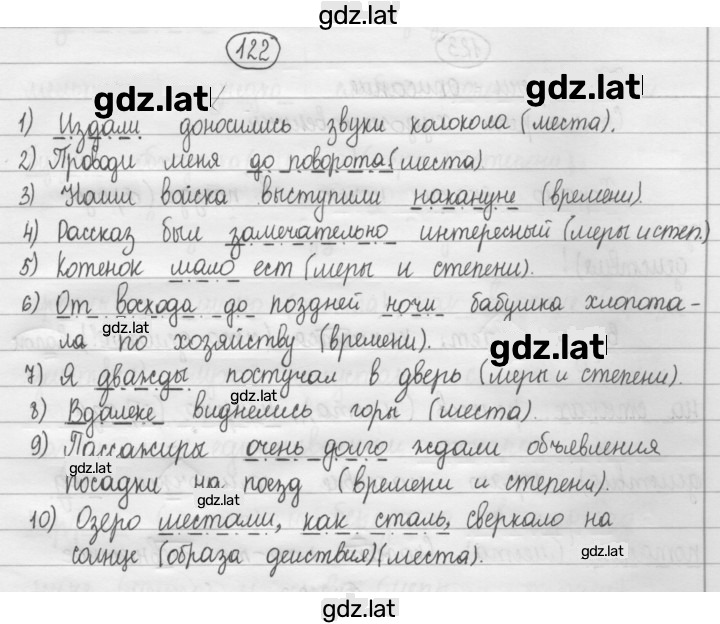 gdz.lat
122
gdz.lat
gdz.lat
1) Издали доносились звуки колокола (места).
2) Проводи меня до поворота (места)
3) Наши войска выступили накануне (времени).
4) Рассказ был замечательно интересный (меры и степ.)
5) Котенок мало ест (меры и степени).
6) От восхода до поздней ночи бабушка хлопота-
gdz.lat
ла по хозяйству (времени).
gdz.lat
7) Я дважды постучал в дверь (меры и степени).
8) Вдалеке виднелись горы (места).
9) Пассажиры очень долго ждали объявления
gdz.lat
посадки на поезд (времени и степени).
gdz.lat
10) Озеро местами, как сталь, сверкало на
солнце (образа действия) (места).
gdz.lat
gdz.lat